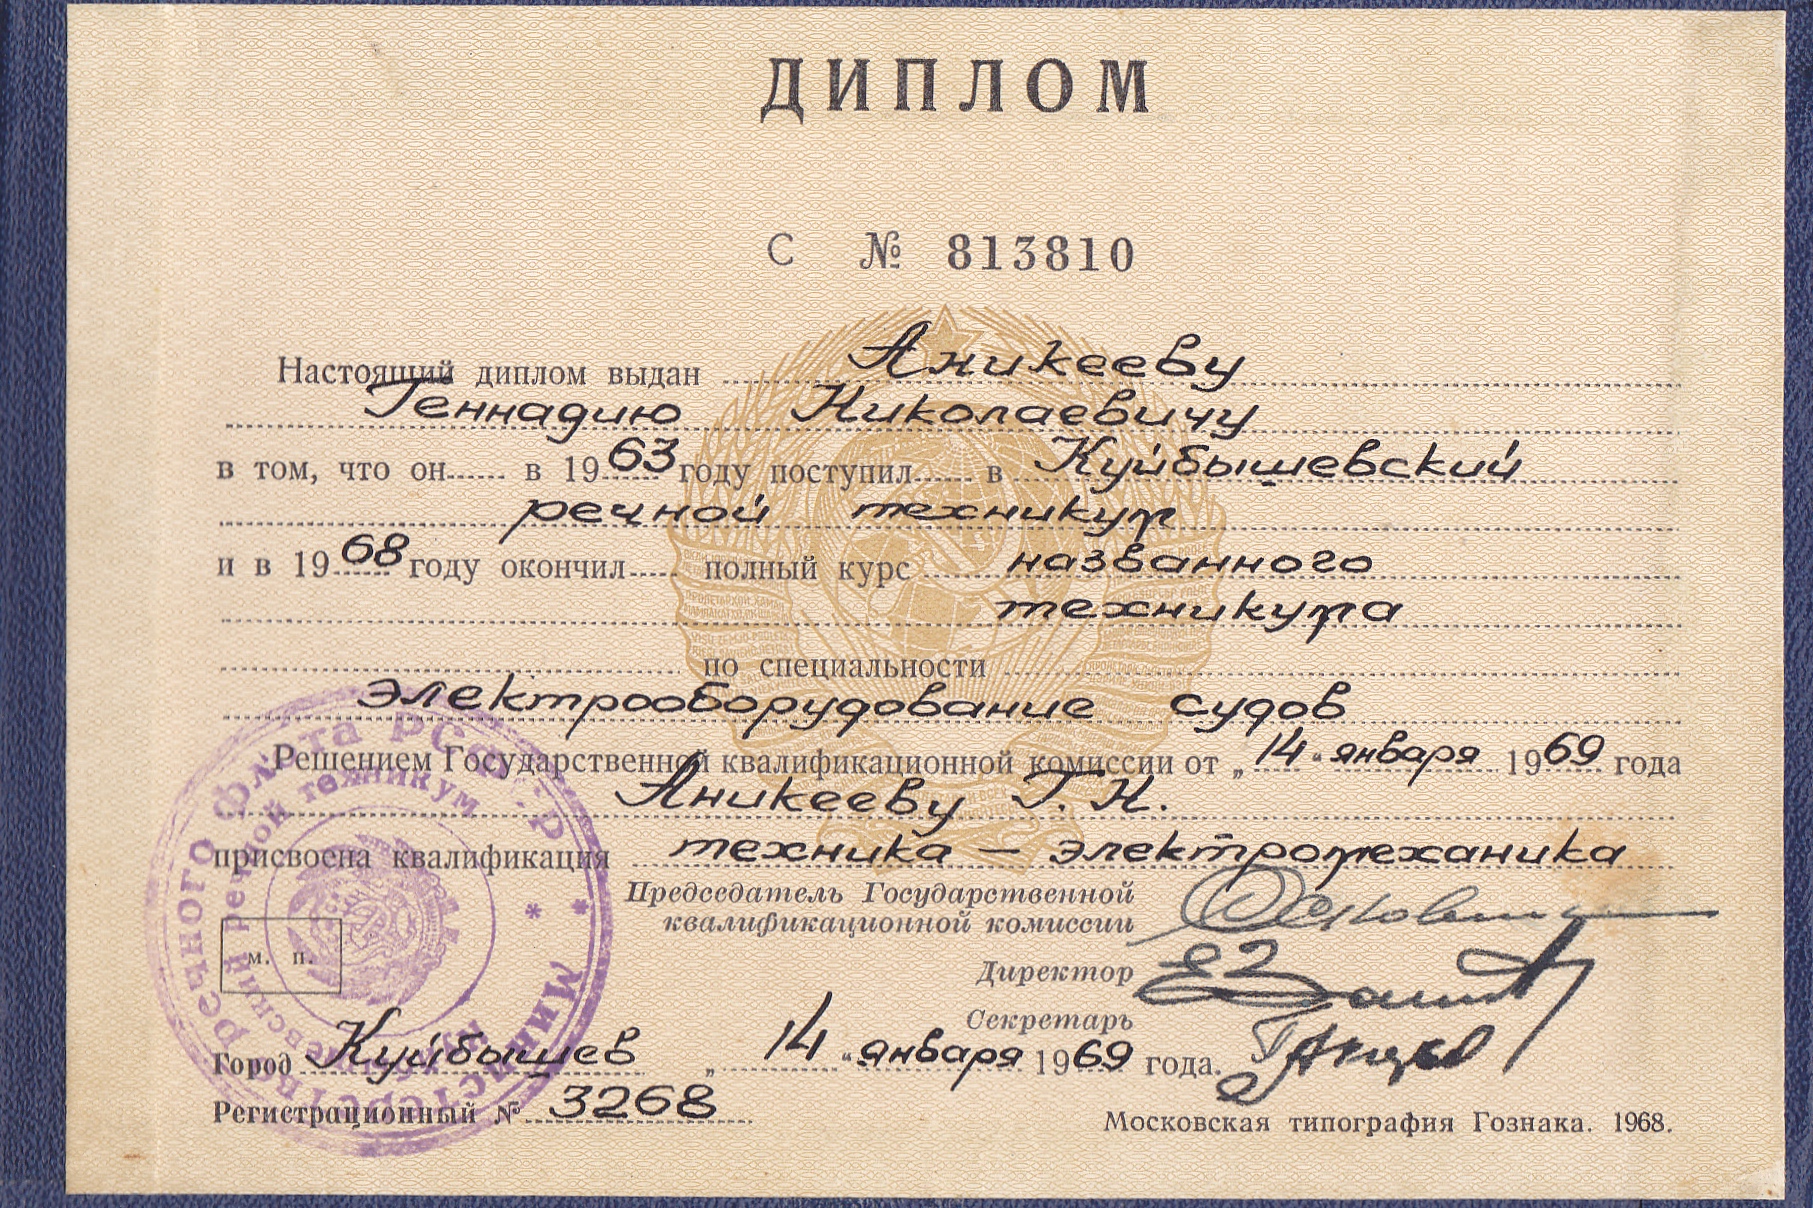 ДИПЛОМ
С № 813810
Настоящий диплом выдан Аникееву
Геннадию Николаевичу
в том, что он в 1963 году поступил в Куйбышевский
речной техникум
и в 1968 году окончил полный курс названного
техникума
по специальности
электрооборудование судов
Решением Государственной квалификационной комиссии от „14“ января 1969 года
Аникееву Г. Н.
присвоена квалификация техника – электромеханика
Председатель Государственной
квалификационной комиссии
Директор
Секретарь
м. п.
Город Куйбышев „14“ января 1969 года.
Регистрационный № 3268
Московская типография Гознака. 1968.
Министерство речного флота РСФСР
речной техникум